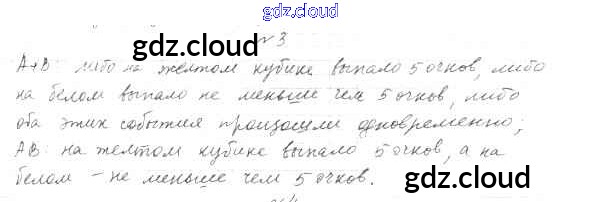 gdz.cloud
№3
gdz.cloud
A+B: либо на желтом кубике выпало 5 очков, либо
на белом выпало не меньше чем 5 очков, либо
оба этих события произошли одновременно;
AB: на желтом кубике выпало 5 очков, а на
белом – не меньше чем 5 очков.
gdz.cloud
gdz.cloud